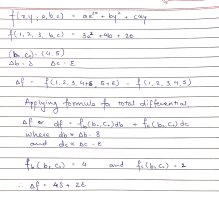 f(x,y,a,b,c) = ax² + by² + cxy
f(1,2,3,b,c) = 3a² + 4b + 2c
(b₀,c₀) = (4,5)
Δb = δ Δc = ε
Δf = f(1,2,3,4+δ,5+ε) - f(1,2,3,4,5)
Applying formula for total differential,
Δf or df = f_b(b₀,c₀)db + f_c(b₀,c₀)dc
where db ≈ Δb = δ
and dc ≈ Δc = ε
f_b(b₀,c₀) = 4 and f_c(b₀,c₀) = 2
∴ Δf = 4δ + 2ε